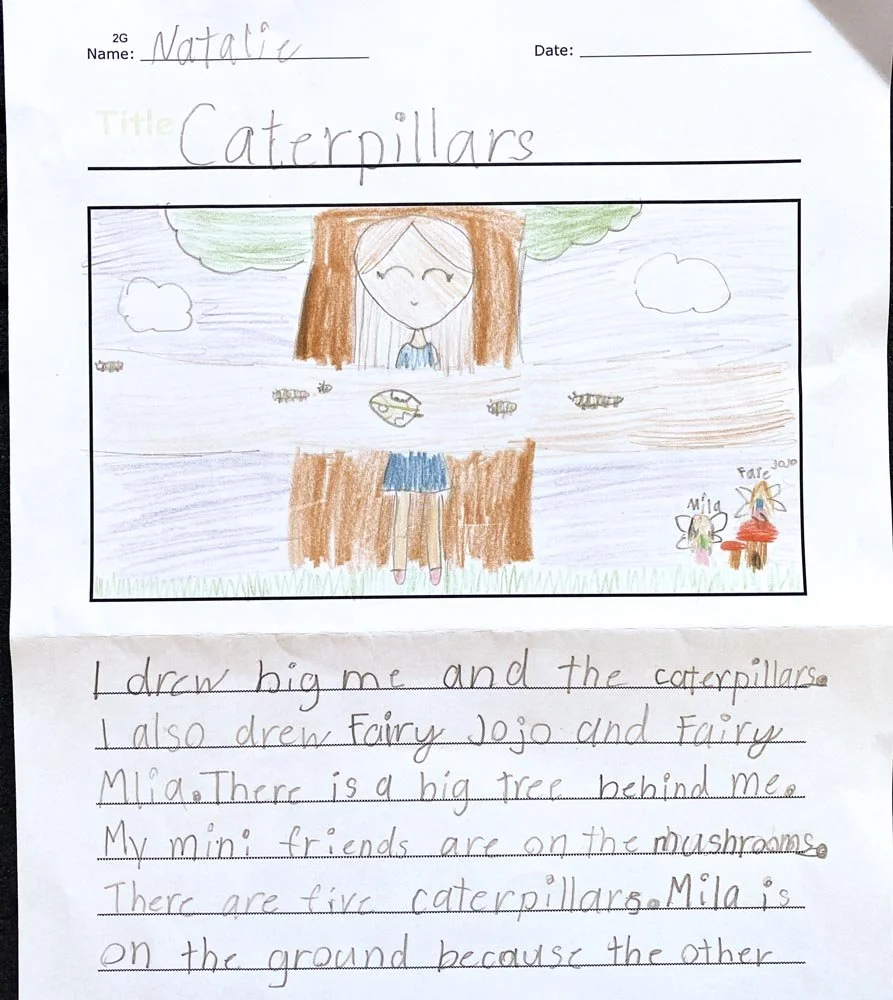 2G
Name: Natalie
Date:
Title Caterpillars
Fare JoJo
Mila
I drew big me and the caterpillars.
I also drew Fairy Jojo and Fairy
Mlia. There is a big tree behind me.
My mini friends are on the mushrooms.
There are five caterpillars. Mila is
on the ground because the other